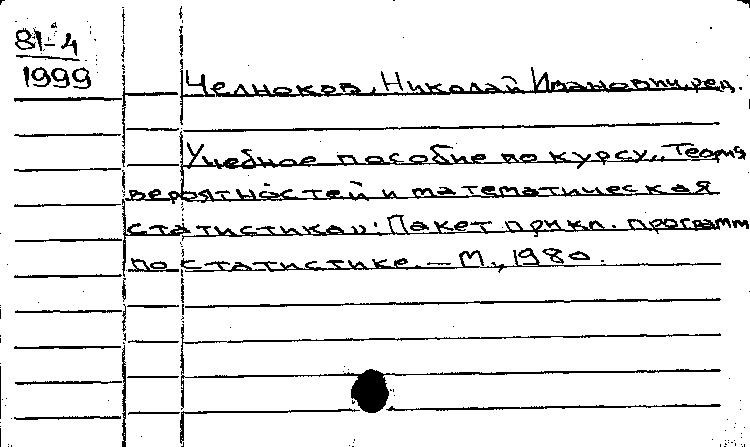 81-4
1999
Челноков, Николай Иванович, ред.
Учебное пособие по курсу „Теория
вероятностей и математическая
статистика": Пакет прикл. программ
по статистике. – М., 1980.